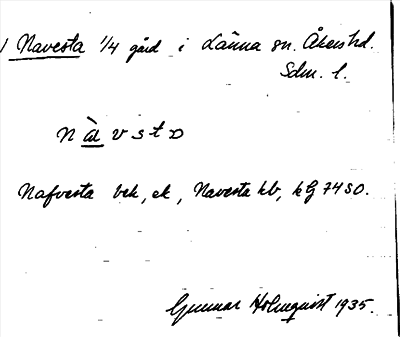 1 Navesta 1/4 gård i Länna sn. Åkers hd.
Sdm. l.
Nafvesta bek, ek, Navesta kb, kG 74 SO.
Gunnar Holmquist 1935.